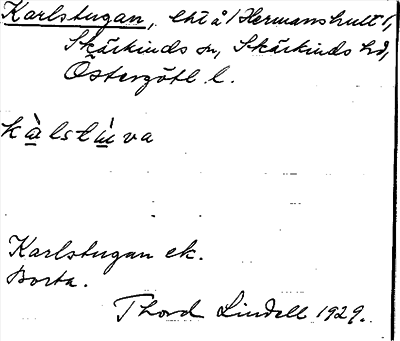 Karlstugan, lht å 1 Hermanshult 1,
Skärkinds sn, Skärkinds hd,
Östergötl. l.
kàlstùva
Karlstugan ek.
Borta.
Thord Lindell 1929.